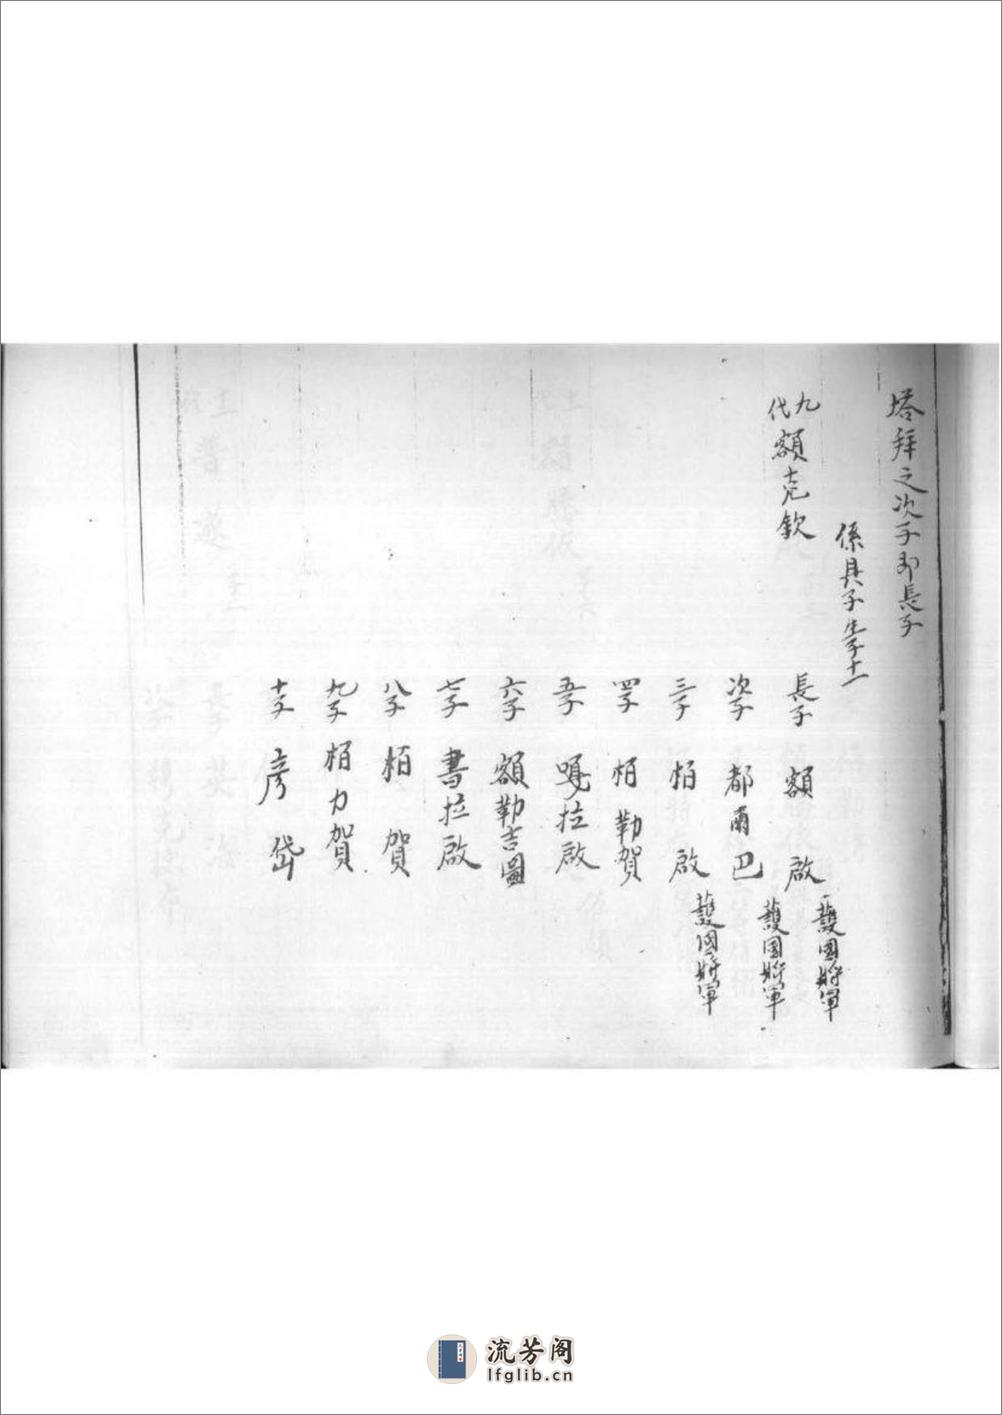 塔拜之次子即長子
係具子生子十一
九代 額克欽
長子 額啟 護國將軍
次子 都爾巴 護國將軍
三子 栢啟 護國將軍
四子 栢勒賀
五子 嘎拉啟
六子 額勒吉圖
七子 書拉啟
八子 栢賀
九子 栢力賀
十子 彥岱
流芳阁
lfglib.cn